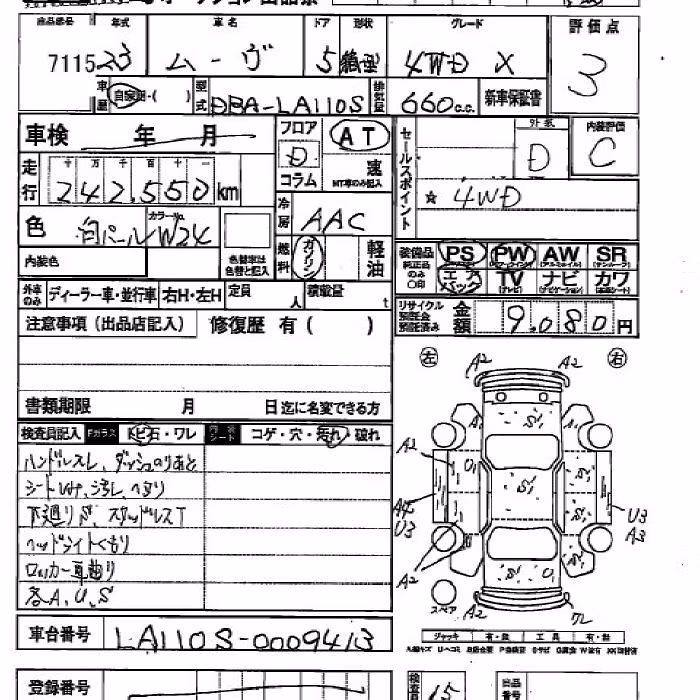 出品番号 年式 車名 ドア 形状 グレード 評価点
7115 23 ムーヴ 5 箱型 4WD X 3
車歴 自家用・( ) 型式 DBA-LA110S 排気量 660c.c. 新車保証書
車検 年 月
フロア D コラム
AT
速
MT車のみ記入
セールスポイント
外装 D
内装評価 C
走行
十 万 千 百 十 一
242,550 km
☆ 4WD
色 白パール カラーNo. W24
色替車は色替と記入
冷房 AAC
内装色
燃料 ガソリン 軽油
装備品 純正品のみ○印
PS PW AW SR
エアバック TV ナビ カワ
外車のみ ディーラー車・並行車 右H・左H 定員 人 積載量 t
リサイクル預託金預託済み 金額 9,080円
注意事項(出品店記入) 修復歴 有( )
左 右
書類期限 月 日迄に名変できる方
検査員記入 Fガラス トビ石・ワレ 内張シート コゲ・穴・汚れ・破れ
ハンドルスレ、ダッシュのりあと
シート
下廻りサ、スタッドレスT
ヘッドライトくもり
ロッカー
各A、U、S
A2 A2
A2
A4
U3
A2
U3
A3
S1 S1 S1 S1 S1
スペア
A2
ワレ
車台番号 LA110S-0009413
ジャッキ 有・無 工具 有・無
登録番号
検査員 15
出品番号